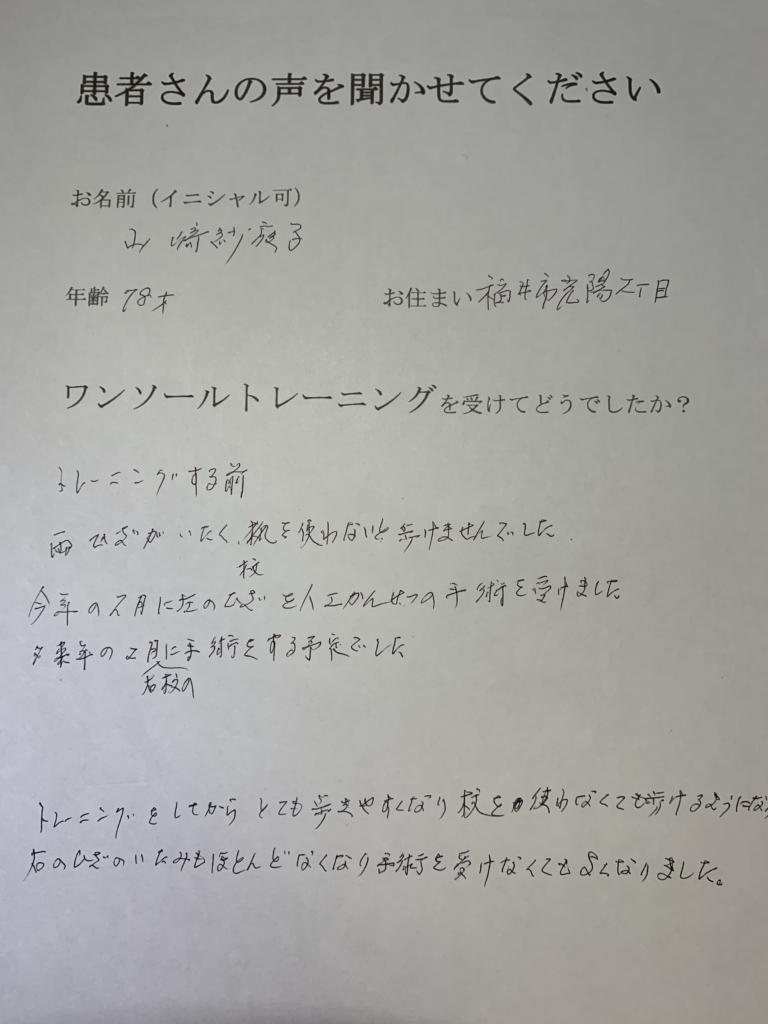 患者さんの声を聞かせてください
お名前（イニシャル可）
山崎紗庭子
年齢 78才
お住まい 福井市光陽2丁目
ワンソールトレーニングを受けてどうでしたか？
トレーニングする前
両ひざがいたく、杖を使わないと歩けませんでした。
杖
今年の2月に左のひざを人工かんせつの手術を受けました
来年の2月に手術をする予定でした
右杖の
トレーニングをしてからとても歩きやすくなり杖を使わなくても歩けるようになり
右のひざのいたみもほとんどなくなり手術を受けなくてもよくなりました。